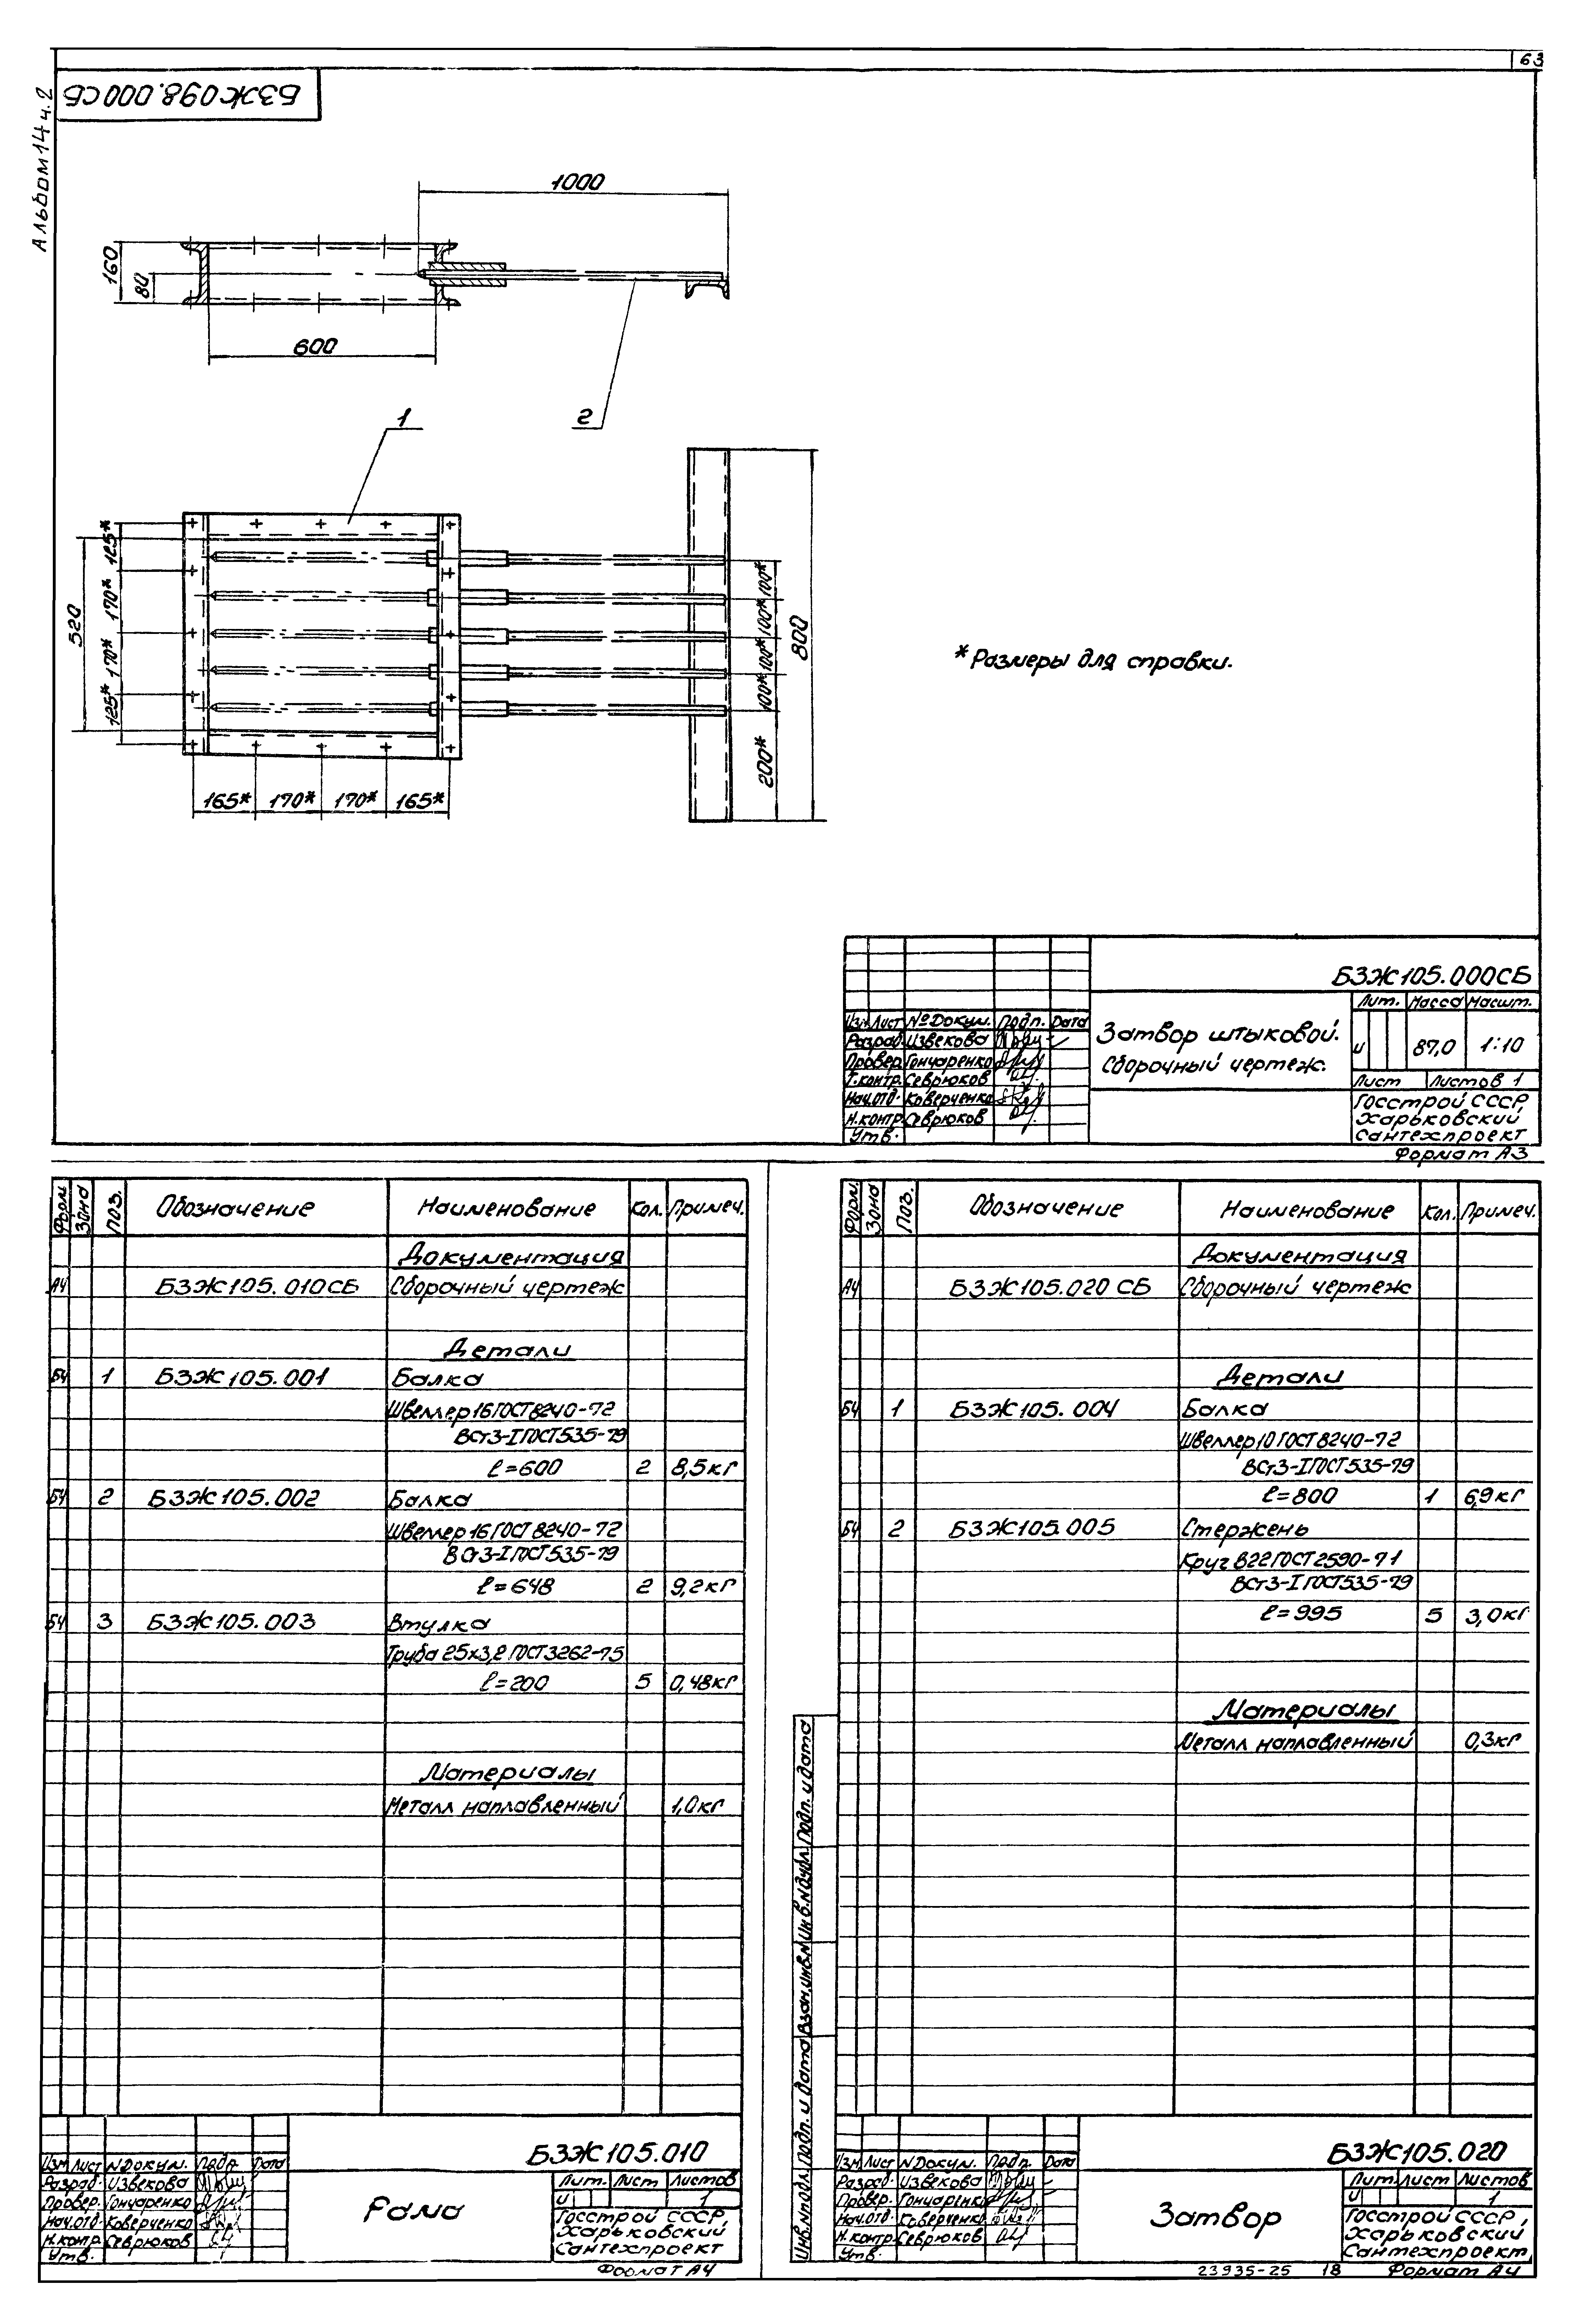 63
Альбом 14 ч. 2
БЗЖ098.000СБ
1000
160
80
600
1
2
520
125*
170*
170*
125*
165* 170* 170* 165*
100*
100*
100*
100*
200*
800
* Размеры для справки.
БЗЖ105.000СБ
Изм. Лист № Докум. Подп. Дата
Разраб. Извекова
Провер. Гончаренко
Т.контр. Севрюков
Нач.отд. Коверченко
Н.контр. Севрюков
Утв.
Затвор штыковой.
Сборочный чертеж.
Лит. Масса Масшт.
и 87,0 1:10
Лист Листов 1
Госстрой СССР,
Харьковский
Сантехпроект
Формат А3
Форм. Зона Поз. Обозначение Наименование Кол. Примеч.
Документация
А4 БЗЖ105.010СБ Сборочный чертеж
Детали
БЧ 1 БЗЖ105.001 Балка
Швеллер 16 ГОСТ 8240-72
ВСт3-I ГОСТ 535-79
ℓ=600 2 8,5кг
БЧ 2 БЗЖ105.002 Балка
Швеллер 16 ГОСТ 8240-72
ВСт3-I ГОСТ 535-79
ℓ=648 2 9,2кг
БЧ 3 БЗЖ105.003 Втулка
Труба 25х3,2 ГОСТ 3262-75
ℓ=200 5 0,48кг
Материалы
Металл наплавленный 1,0кг
БЗЖ105.010
Изм. Лист N Докум. Подп. Дата
Разраб. Извекова
Провер. Гончаренко
Нач.отд. Коверченко
Н.контр. Севрюков
Утв.
Рама
Лит. Лист Листов
и 1
Госстрой СССР,
Харьковский
Сантехпроект
Формат А4
Форм. Зона Поз. Обозначение Наименование Кол. Примеч.
Документация
А4 БЗЖ105.020 СБ Сборочный чертеж
Детали
БЧ 1 БЗЖ105.004 Балка
Швеллер 10 ГОСТ 8240-72
ВСт3-I ГОСТ 535-79
ℓ=800 1 6,9кг
БЧ 2 БЗЖ105.005 Стержень
Круг В22 ГОСТ 2590-71
ВСт3-I ГОСТ 535-79
ℓ=995 5 3,0кг
Материалы
Металл наплавленный 0,3кг
Инв.№подл. Подп. и дата Взам.инв.№ Инв.№дубл. Подп. и дата
БЗЖ105.020
Изм. Лист N Докум. Подп. Дата
Разраб. Извекова
Провер. Гончаренко
Нач.отд. Коверченко
Н.контр. Севрюков
Утв.
Затвор
Лит. Лист Листов
и 1
Госстрой СССР,
Харьковский
Сантехпроект
23935-25 18 Формат А4